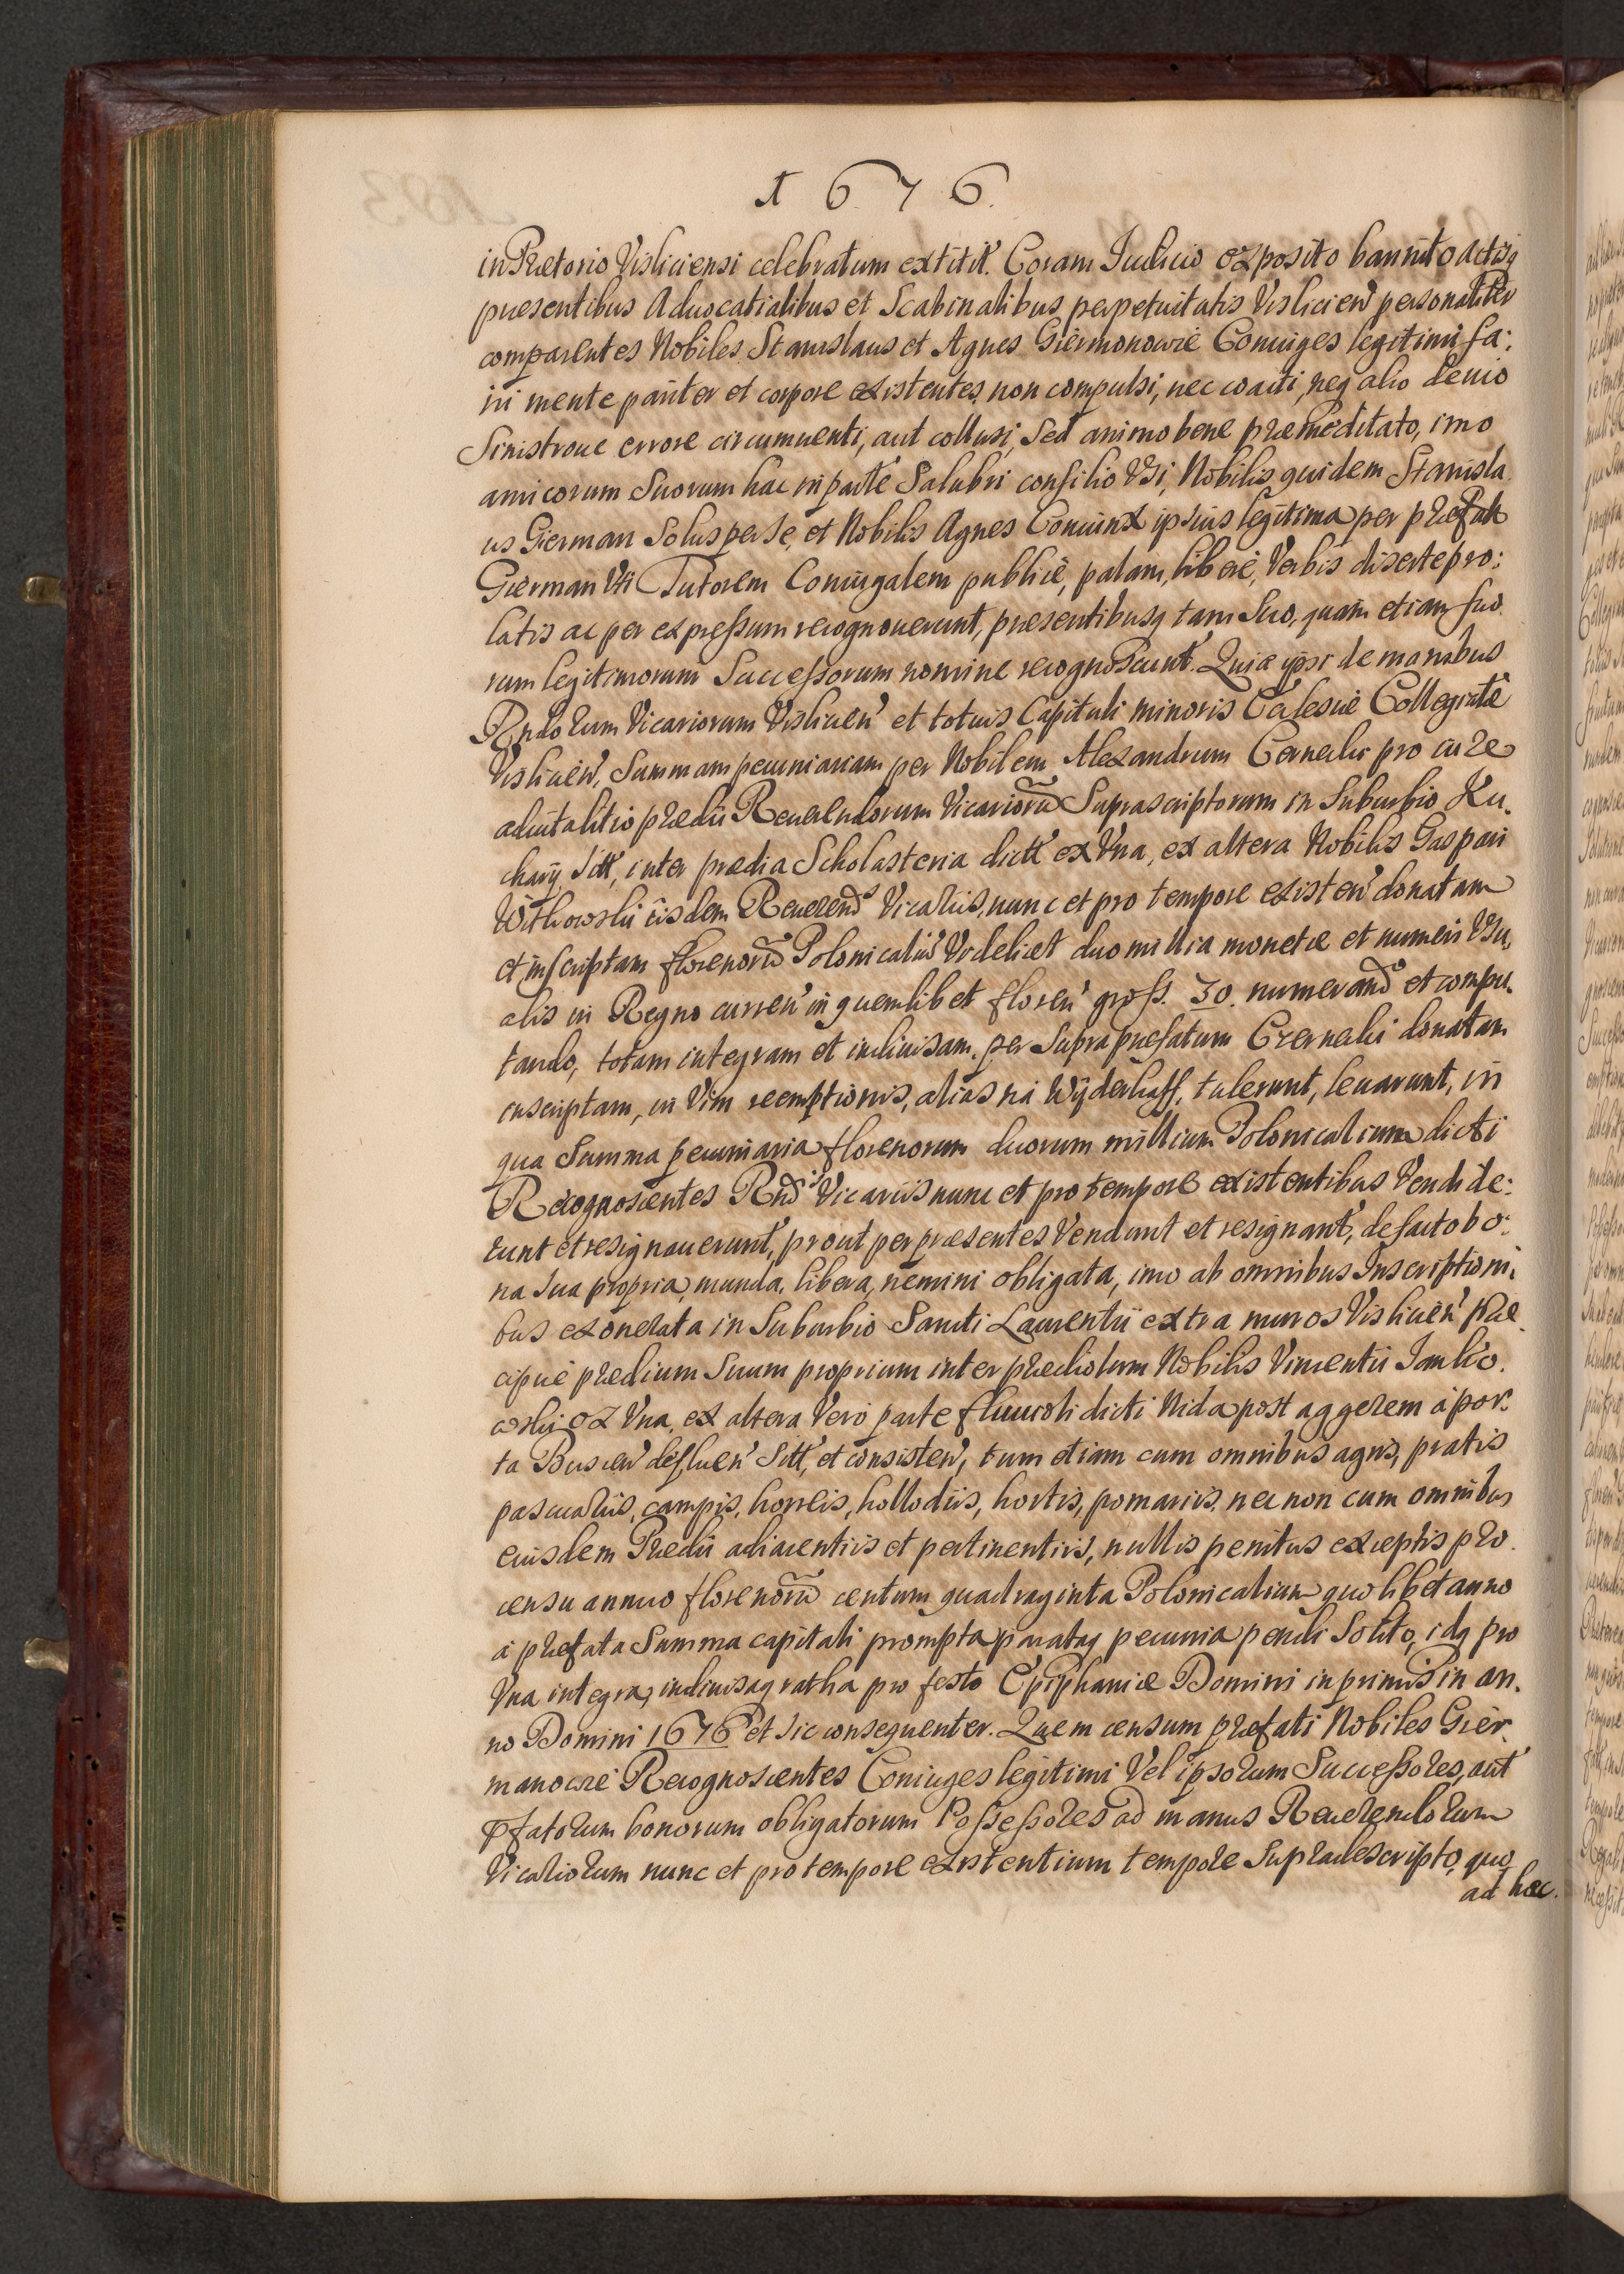 1676.
in Prætorio Visliciensi celebratum extitit. Coram Iudicio exposito bannito Actisq
præsentibus Aduocatialibus et Scabinalibus perpetuitatis Vislicien personaliter
comparentes Nobiles Stanislaus et Agnes Giermonowie Coniuges legitimi sa:
ni mente pariter et corpore existentes, non compulsi, nec coacti, neq alio deuio
Sinistroue errore circumuenti, aut collusi, Sed animo bene præmeditato, imo
amicorum Suorum hac in parte Salubri consilio Vsi, Nobilis quidem Stanisla
us Gierman Solus per Se, et Nobilis Agnes Coniunx ipsius legitima per præfat
Gierman Vti Tutorem Coniugalem publicè, palam, liberè, Verbis disertè pro:
latis ac per expressum recognouerunt, præsentibusq tam Suo, quam etiam suo
rum legitimorum Successorum nomine recognoscunt. Quia ipsi de manibus
Rndorum Vicariorum Vislicien et totius Capituli minoris Ecclesiæ Collegiatæ
Vislicien, Summam pecuniariam per Nobilem Alexandrum Czernecki pro iure
aduitalitio prædii Reuerendorum Vicarioru Suprascriptorum in Suburbio Ku.
chary Sitt, inter prædia Scholasteria dicti ex Vna, ex altera Nobilis Gaspari
Witkowski iisdem Reuerends Vicariis, nunc et pro tempore existen donatam
et inscriptam florenoru Polonicaliu Videlicet duo millia monetæ et numeri Vsu,
alis in Regno curren in quemlibet floren gross. 30. numerando et compu.
tando, totam integram et indiuisam, per Supra præfatum Czernecki donatam
inscriptam, in Vim reemptionis, alias na Wÿderkaff, tulerunt, leuarunt, in
qua Summa pecuniaria florenorum duorum millium Polonicalium dicti
Recognoscentes Rndis Vicariis nunc et pro tempore existentibus Vendide:
runt et resignauerunt, prout per præsentes Vendunt et resignant, de facto bo:
na Sua propria, munda, libera, nemini obligata, imo ab omnibus Inscriptioni,
bus exonerata in Suburbio Sancti Laurentii extra muros Vislicien præ
cipuè prædium Suum proprium inter prædiolum Nobilis Vincentii Janko.
wski ex Vna, ex altera Verò parte fluuioli dicti Nida post aggerem à por:
ta Buscen defluen Sitt, et consisten, tum etiam cum omnibus agris, pratis
pascuariis, campis, horreis, hollodiis, hortis, pomariis, nec non cum omnibus
eiusdem Prædii adiacentiis et pertinentiis, nullis penitus exceptis pro
censu annuo florenoru centum quadraginta Polonicalium quolibet anno
à præfata Summa capitali prompta parataq pecunia pendi Solito, idq pro
Vna integra, indiuisaq ratha pro festo Epiphaniæ Domini inprimis in an.
no Domini 1676 et sic consequenter. Quem censum præfati Nobiles Gier.
manowie Recognoscentes Coniuges legitimi Vel ipsorum Successores, aut
pfatorum bonorum obligatorum Possessores ad manus Reuerendorum
Vicariorum nunc et pro tempore existentium tempore Supradescripto, quo
ad hæc.